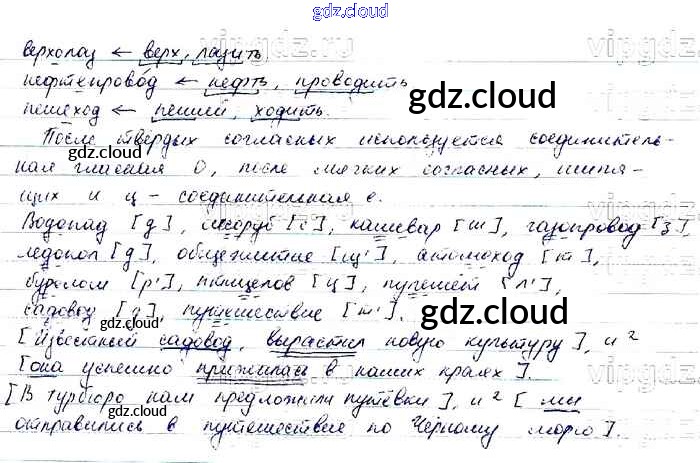 gdz.cloud
верхолаз ← верх, лазить
нефтепровод ← нефть, проводить
пешеход ← пеший, ходить.
После твёрдых согласных используется соединитель-
ная гласная О, после мягких согласных, шипя-
щих и ц - соединительная е.
Водопад [д], лесоруб [с], кашевар [ш], газопровод [з],
ледокол [д], общежитие [щ'], атомоход [м],
[р'], птицелов [ц], [л'],
садовод [д], путешествие [т'].
[Известный садовод, вырастил новую культуру], и ²
[она успешно прижилась в наших краях].
[В турбюро нам предложили путёвки], и ² [мы
отправились в путешествие по Чёрному морю].
gdz.cloud
gdz.cloud
gdz.cloud
gdz.cloud
gdz.cloud
vipgdz.ru